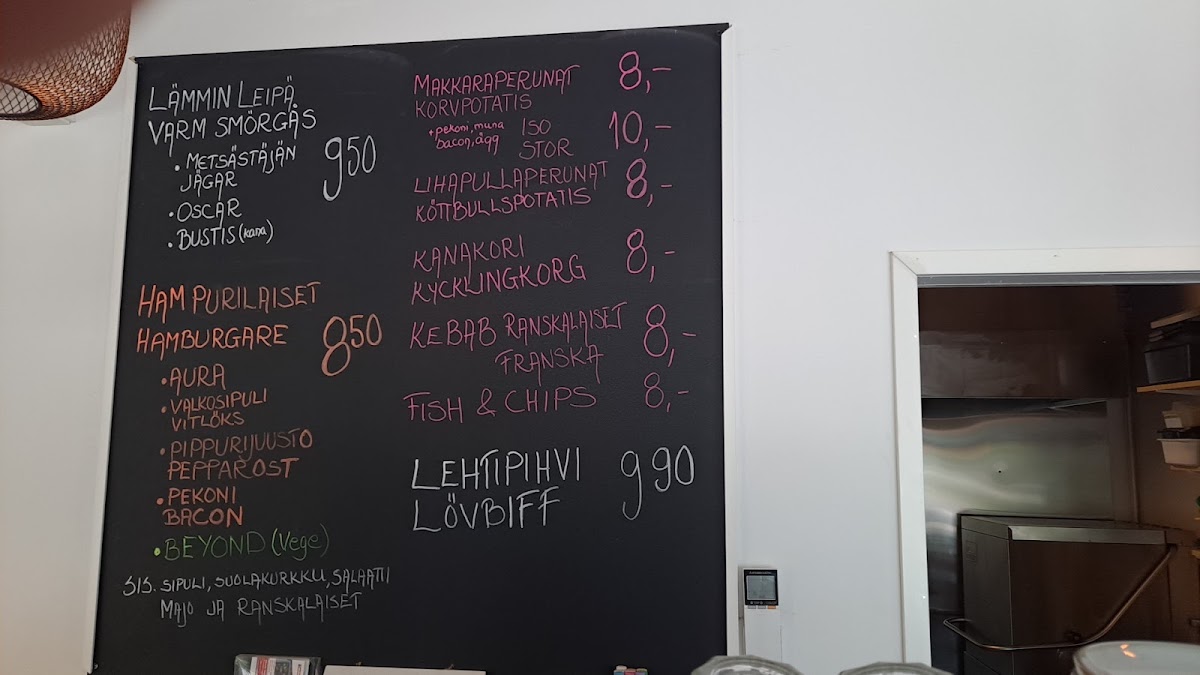 LÄMMIN LEIPÄ
VARM SMÖRGÅS
• METSÄSTÄJÄN
JÄGAR
950
• OSCAR
• BUSTIS (kana)
HAMPURILAISET
HAMBURGARE
850
• AURA
• VALKOSIPULI
VITLÖKS
• PIPPURIJUUSTO
PEPPAROST
• PEKONI
BACON
• BEYOND (Vege)
SIS. SIPULI, SUOLAKURKKU, SALAATTI
MAJO JA RANSKALAISET
MAKKARAPERUNAT 8,-
KORVPOTATIS
+ pekoni, muna ISO 10,-
bacon, ägg STOR
LIHAPULLAPERUNAT 8,-
KÖTTBULLSPOTATIS
KANAKORI 8,-
KYCKLINGKORG
KEBAB RANSKALAISET 8,-
FRANSKA
FISH & CHIPS 8,-
LEHTIPIHVI 990
LÖVBIFF